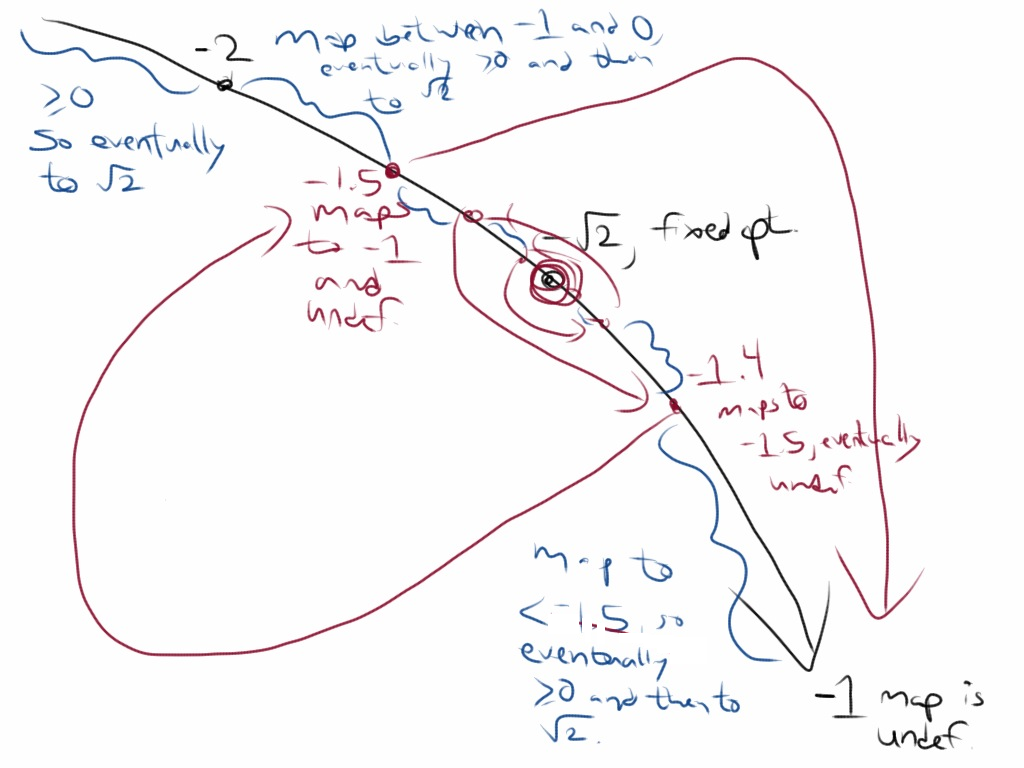 -2
map between -1 and 0,
eventually ≥0 and then
to √2
≥0
so eventually
to √2
-1.5
maps
to -1
and
undef.
-√2, fixed pt.
-1.4
maps to
-1.5, eventually
undef.
map to
<-1.5, so
eventually
≥0 and then to
√2.
-1 map is
undef.